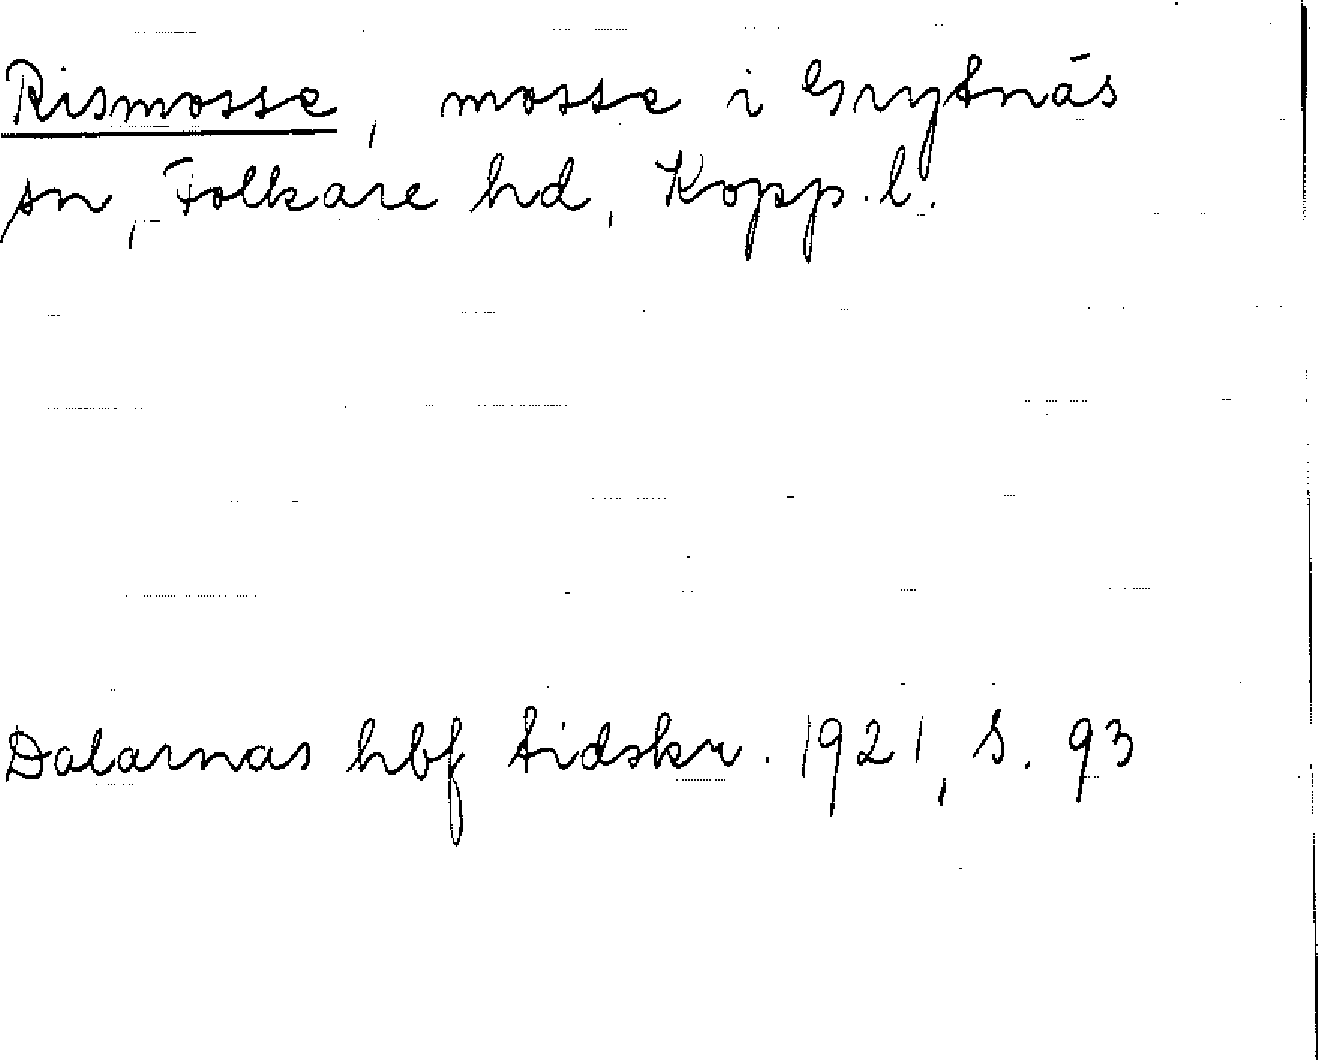 Rismosse, mosse i Grytnäs
sn, Folkare hd, Kopp. l.
Dalarnas hbf tidskr. 1921, S. 93